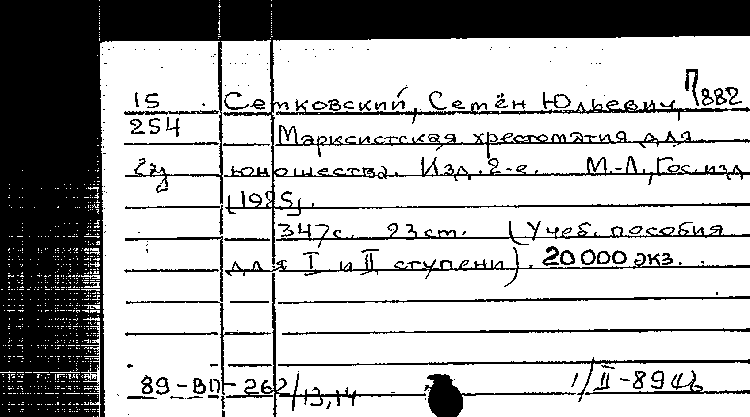 15 Семковский, Семён Юльевич, П/882
254 Марксистская хрестоматия для
2э юношества. Изд. 2-е. М.-Л., Гос.изд
[1925].
347с. 23ст. (Учеб. пособия
для I и II ступени). 20000 экз.
89-ВП-262/13,14 1/II-89